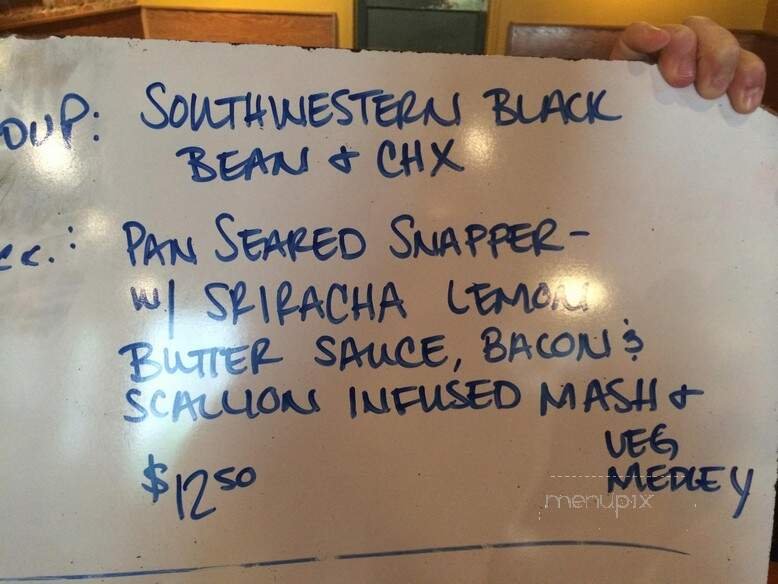 OUP: SOUTHWESTERN BLACK
BEAN & CHX
ec.: PAN SEARED SNAPPER-
w/ SRIRACHA LEMON
BUTTER SAUCE, BACON &
SCALLION INFUSED MASH &
VEG
$12 50 MEDLEY
menupix